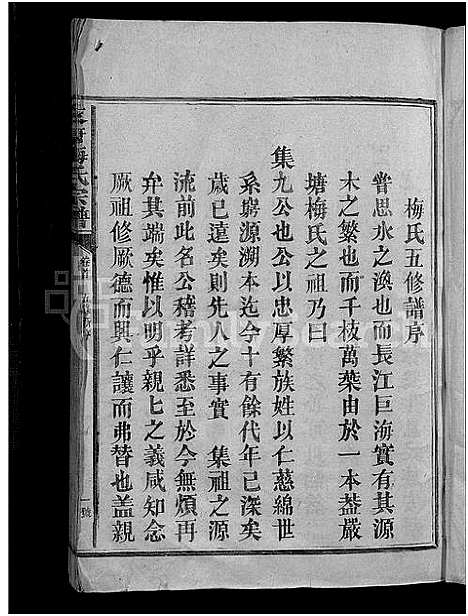 梅氏五修譜序
嘗思水之渙也而長江巨海實有其源
木之繁也而千枝萬葉由於一本葢嚴
塘梅氏之祖乃曰
集九公也公以忠厚繁族姓以仁慈綿世
系窮源溯本迄今十有餘代年已深矣
歲已遠矣則先人之事實 集祖之源
流前此名公稽考詳悉至於今無煩再
弁其端矣惟以明乎親匕之義咸知念
厥祖修厥德而興仁讓而弗替也盖親
梅氏宗譜
卷首
一號
FamilySearch